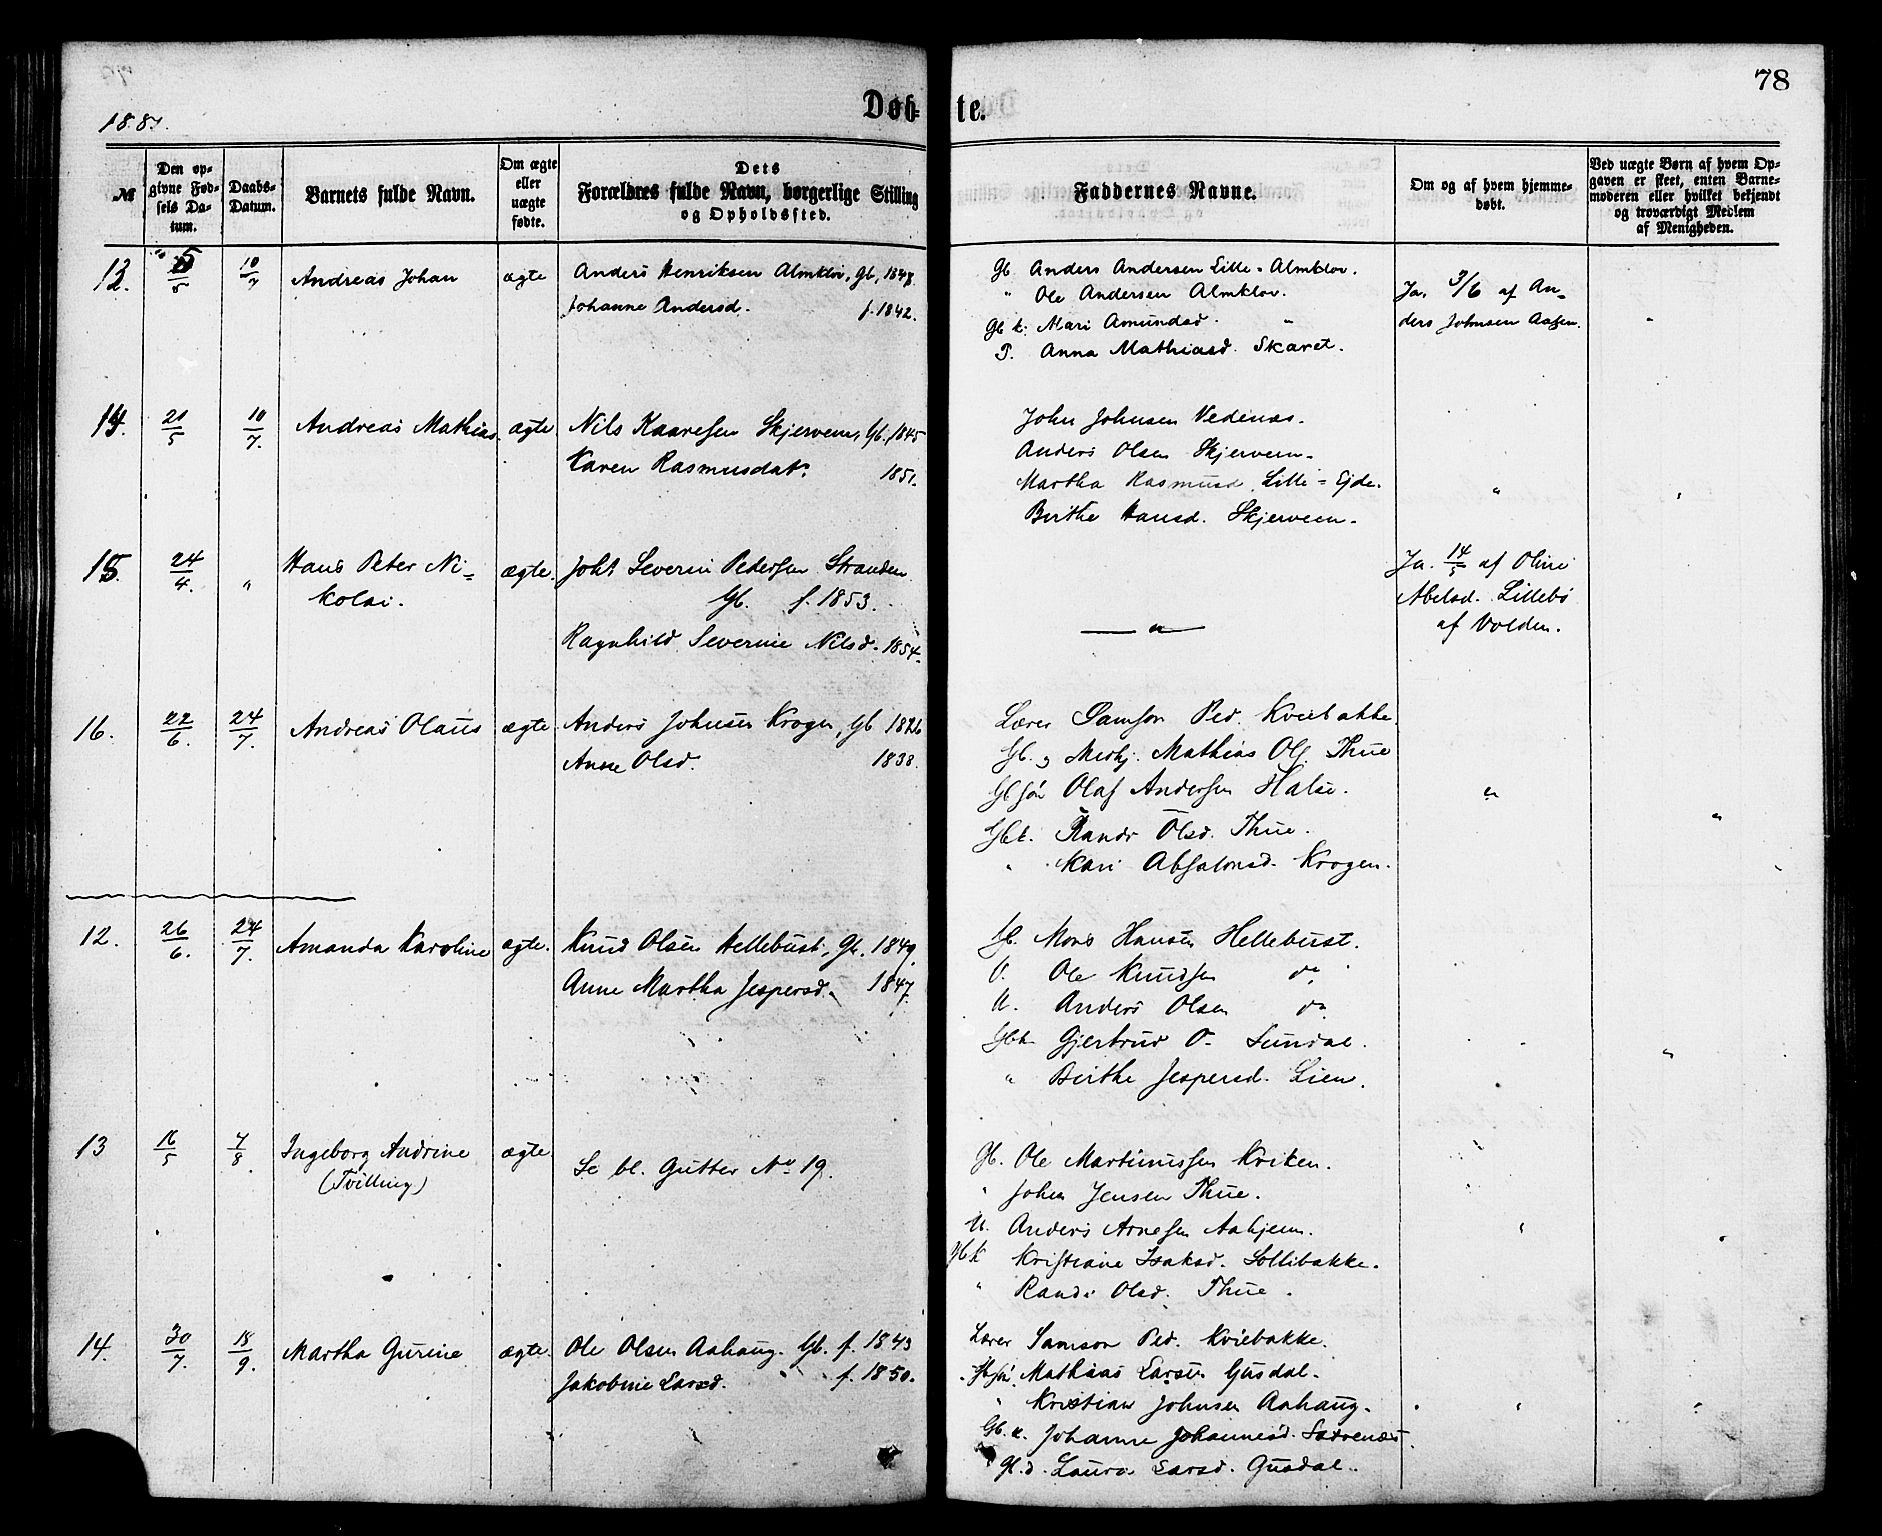 78
Døb-te.
1881.
№
Den op-
givne Fød-
sels Da-
tum.
Daabs-
Datum.
Barnets fulde Navn.
Om ægte
eller
uægte
fødte.
Dets
Forældres fulde Navn, borgerlige Stilling
og Opholdssted.
Faddernes Navne.
Om og af hvem hjemme-
døbt.
Ved uægte Børn af hvem Op-
gaven er skeet, enten Barne-
moderen eller hvilket bekjendt
og troværdigt Medlem
af Menigheden.
13. 10/7 Andreas Johan ægte Anders Henriksen Almklov, Gb, 1848
Johanne Andersd. f. 1842.
Gb Anders Andersen Lille-Almklov.
" Ole Andersen Almklov.
Gb k. Mari Amundsd. "
P. Anna Mathiasd. Skaret.
Ja, 3/6 af An-
ders Johnsen Aasen.
14. 21/5 10/7. Andreas Mathias. ægte Nils Kaaresen Skjervem, Gb. 1845
Karen Rasmusdat. 1851.
John Johnsen Vedenæs.
Anders Olsen Skjervem.
Martha Rasmusd. Lille-Ejde.
Birthe Hansd. Skjervem. "
15. 24/4. " Hans Peter Ni-
kolai. ægte. Joht Severin Pedersen Stranden
Gb. f. 1853.
Ragnhild Severine Nilsd. 1854.
— " —
Ja. 14/5 af Oline
Abelsd. Lillebø
af Volden.
16. 22/6. 24/7. Andreas Olaus ægte Anders Johnsen Krogen, Gb 1826
Anne Olsd. 1838.
Lærer Samson Ped. Kviebakke
Gb. og Medhj. Mathias Ols. Thue
Gb søn Olaf Andersen Halse. "
Gbk. Randi Olsd. Thue. "
" Mari Absalonsd. Krogen.
12. 26/6. 24/7. Amanda Karoline ægte. Knud Olsen Hellebust, Gb. 1849.
Anne Martha Jespersd. 1847.
Gb. Mons Hansen Hellebust.
U. Ole Knudsen do
U. Anders Olsen do
Gbk Gjertrud O. Sundal. "
" Birthe Jespersd. Lien.
13 16/5 7/8. Ingeborg Andrine
(Tvilling) ægte Se bl. Gutter No 19.
Gb. Ole Martinussen Kriken.
" Johan Jensen Thue.
U. Anders Arnesen Aahjem. "
Gb k Kristiane Isaksd. Sollibakke.
" Randi Olsd. Thue.
14. 30/7. 18/9. Martha Gurine ægte. Ole Olsen Aahaug. Gb. f. 1843
Jakobine Larsd. f. 1850.
Lærer Samson Ped. Kviebakke.
Gb søn Mathias Larsen Gusdal.
" Kristian Johnsen Aahaug. "
Gb. k. Johanne Johannesd.
Gb. d. Laura Larsd. Gusdal.